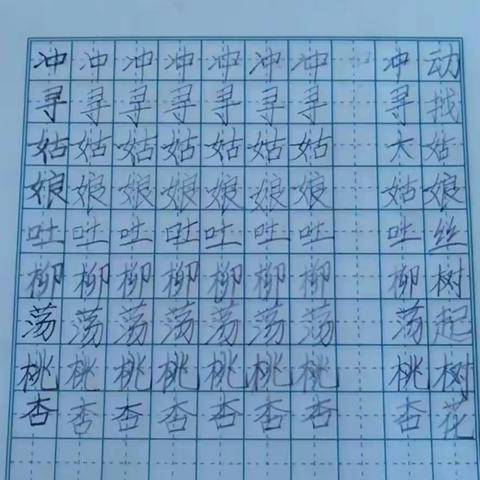 冲冲冲冲冲冲冲 冲动
寻寻寻寻寻寻寻 寻找
姑姑姑姑姑姑姑 大姑
娘娘娘娘娘娘娘 姑娘
吐吐吐吐吐吐吐 吐丝
柳柳柳柳柳柳柳 柳树
荡荡荡荡荡荡荡 荡起
桃桃桃桃桃桃桃 桃树
杏杏杏杏杏杏杏 杏花